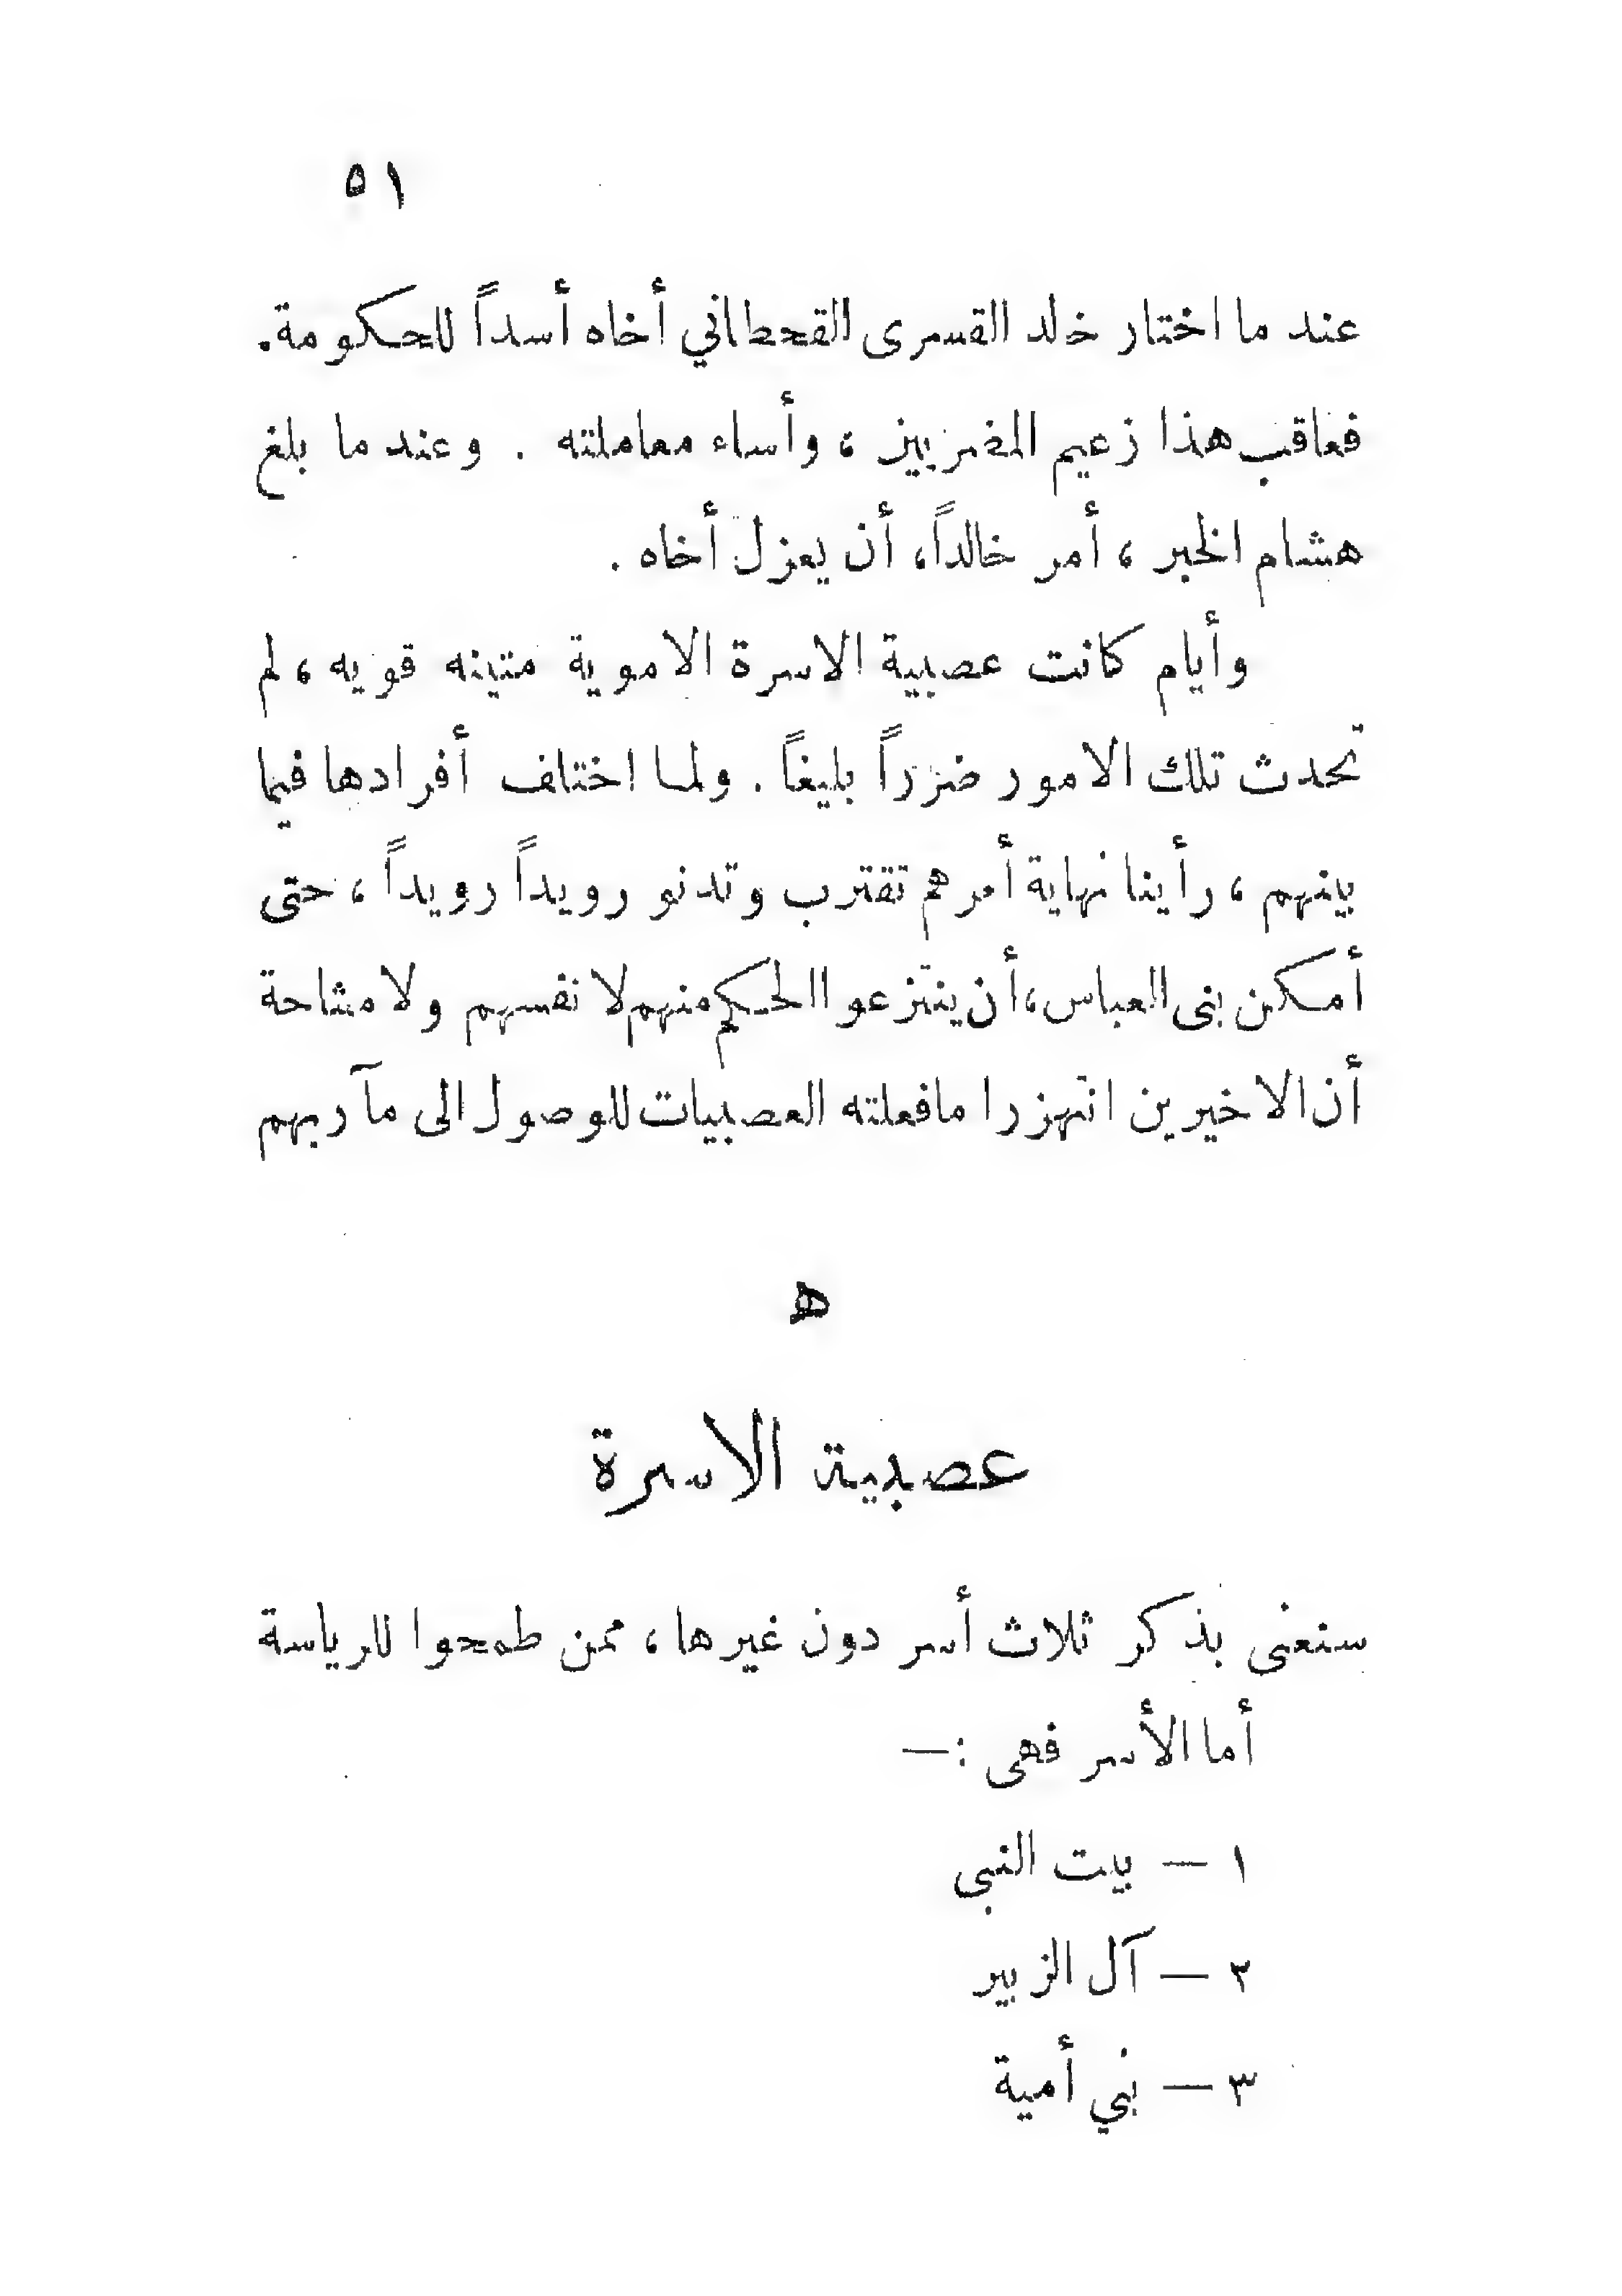 ٥١
عند ما اختار خالد القسرى القحطاني أخاه أسداً للحكومة.
فعاقب هذا زعيم المضريين ، وأساء معاملته . وعند ما بلغ
هشام الخبر ، أمر خالداً، أن يعزل أخاه .
وأيام كانت عصبية الاسرة الاموية متينه قويه ، لم
تحدث تلك الامور ضرراً بليغاً . ولما اختلف أفرادها فيما
بينهم ، رأينا نهاية أمرهم تقترب وتدنو رويداً رويداً ، حتى
أمكن بنى العباس، أن ينتزعوا الحكم منهم لانفسهم ولا مشاحة
أن الاخيرين انتهزرا مافعلته العصبيات للوصول الى مآربهم
ه
عصبية الاسرة
سنعنى بذكر ثلاث أسر دون غيرها ، ممن طمحوا للرياسة
أما الأسر فهى :—
١ — بيت النبى
٢ — آل الزبير
٣ — بني أمية